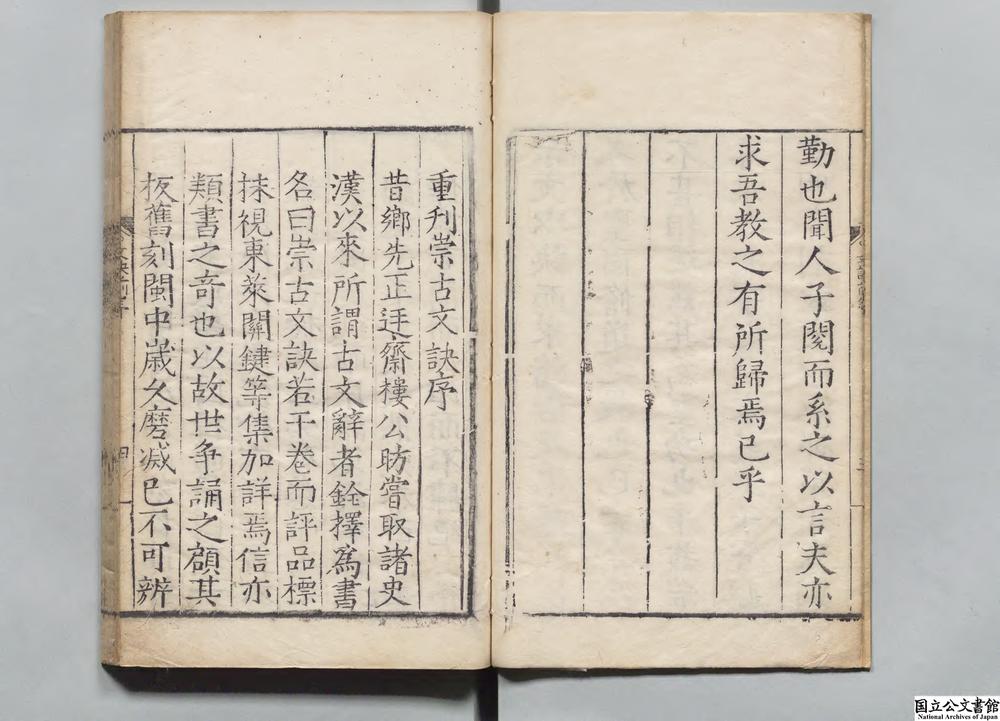 勤也聞人子閱而系之以言夫亦
求吾教之有所歸焉已乎
三
重刋崇古文訣序
昔鄉先正迂齋樓公昉嘗取諸史
漢以來所謂古文辭者銓擇爲書
名曰崇古文訣若干卷而評品標
抹視東萊關鍵等集加詳焉信亦
類書之竒也以故世争誦之顧其
板舊刻閩中歲久磨滅已不可辨
四
国立公文書館
National Archives of Japan